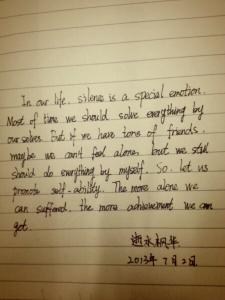 In our life, silence is a special emotion.
Most of time we should solve everything by
ourselves. But if we have tons of friends,
maybe we can't feel alone, but we still
should do everything by myself. So let us
promote self-ability. The more alone we
can suffered, the more achievement we can
got.
永枫华
2013年7月2日